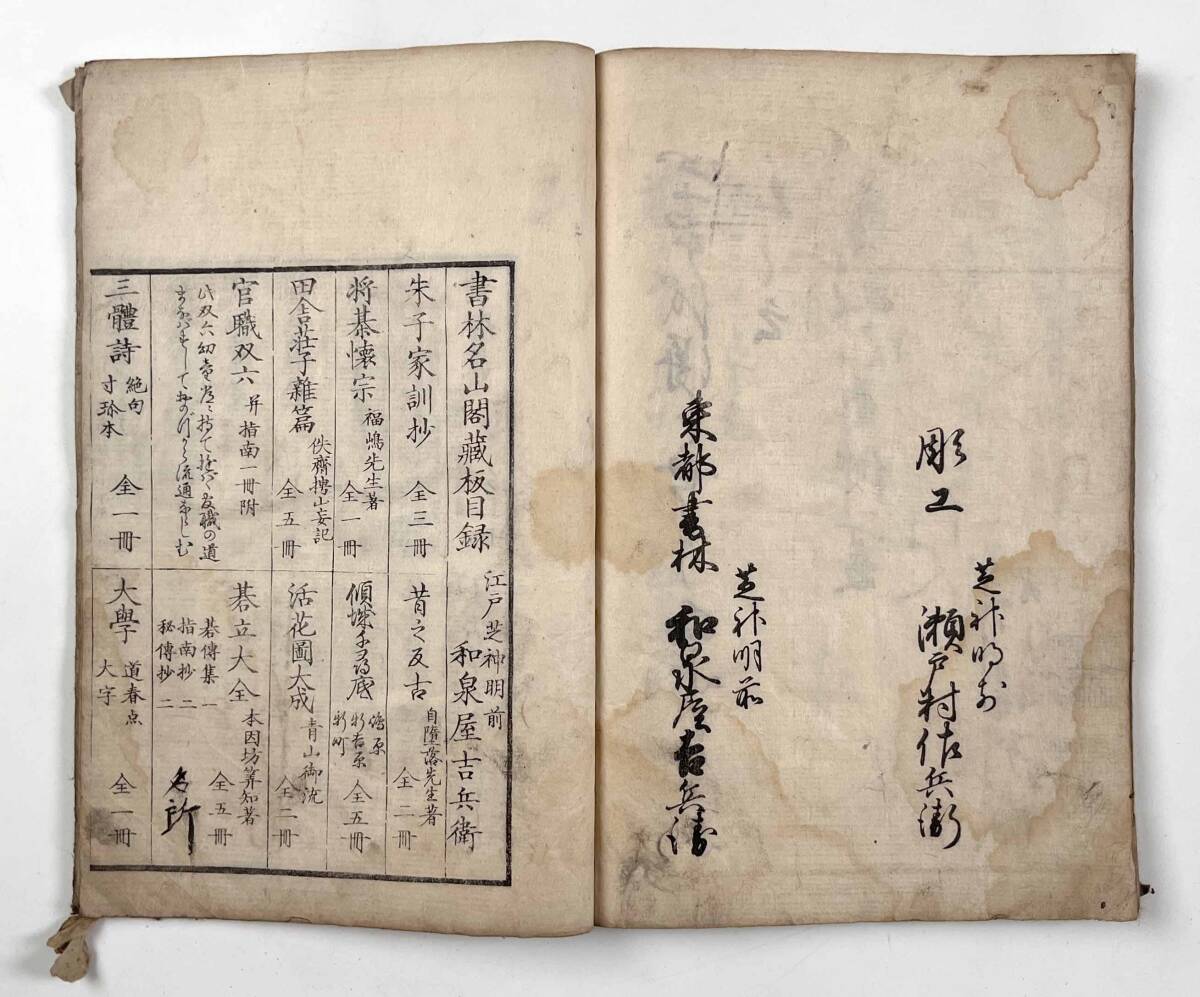 彫工
芝神明前
瀬戸村佐兵衛
東都書林
芝神明前
和泉屋吉兵衛
書林名山閣藏板目録
江戸芝神明前
和泉屋吉兵衛
朱子家訓抄 全三冊
昔之反古 自墮落先生著 全二冊
将棊懐宗 福嶋先生著 全一冊
傾城手 嶋原 新吉原 新町 全五冊
田舎荘子雜篇 佚齊樗山妄記 全五冊
活花圖大成 青山御流 全二冊
官職双六 并指南一冊附
碁立大全 本因坊算知著 全五冊
此双六幼童
職の道
流通
碁傳集 一
指南抄 二
秘傳抄 二
三體詩 絶句 寸珍本 全一冊
大學 道春点 大字 全一冊